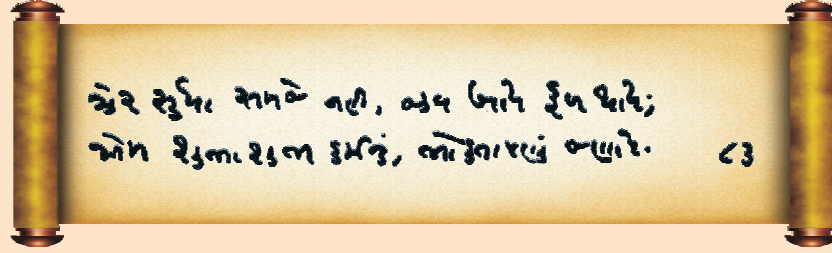 ઝેર સુધા સમજે નહીં, જીવ ખાય ફળ થાય;
એમ શુભાશુભ કર્મનું, ભોક્તાપણું જણાય. ૮૩